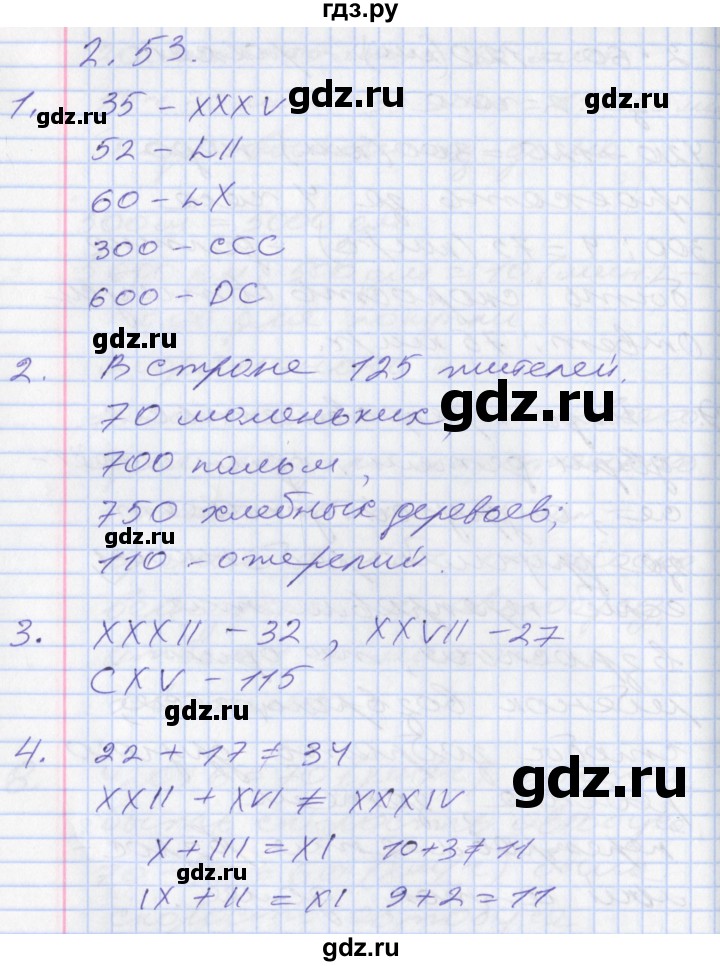 гдз.ру
2.53.
1. 35 - XXXV
gdz.ru gdz.ru gdz.ru
52 - LII
60 - LX
300 - CCC
600 - DC
gdz.ru
2. В строне 125 жителей.
gdz.ru
70 моленьких,
700 пальм,
750 хлебных деревьев;
gdz.ru
110 - ожерелий.
3. XXXII - 32, XXVII - 27
CXV - 115
gdz.ru
4. 22 + 17 ≠ 34
gdz.ru
XXII + XVI ≠ XXXIV
X + III = XI 10+3≠11
gdz.ru
IX + II = XI 9+2=11
gdz.ru